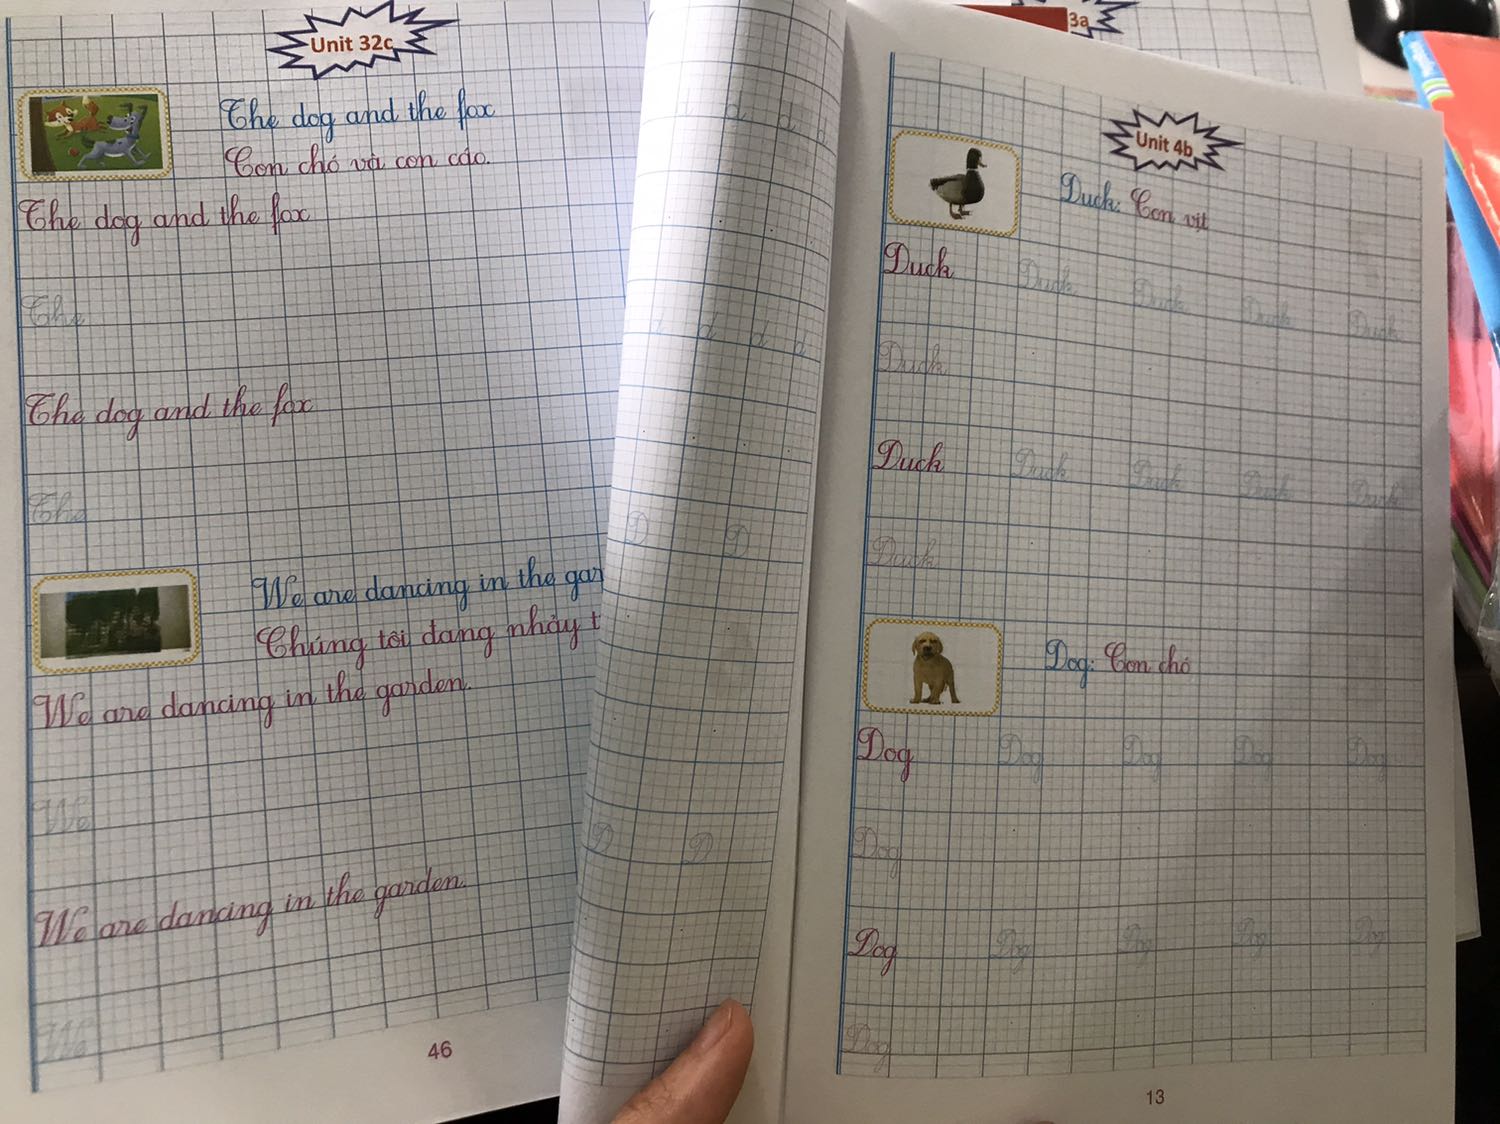 Unit 32c
The dog and the fox
Con chó và con cáo.
The dog and the fox
The
The dog and the fox
The
We are dancing in the gar
Chúng tôi đang nhảy t
We are dancing in the garden.
We
We are dancing in the garden.
We
46
d d d
d d d
D D
D D
3a
Unit 4b
Duck: Con vịt
Duck Duck Duck Duck Duck
Duck
Duck Duck Duck Duck Duck
Duck
Dog: Con chó
Dog Dog Dog Dog Dog
Dog
Dog Dog Dog Dog Dog
Dog
13